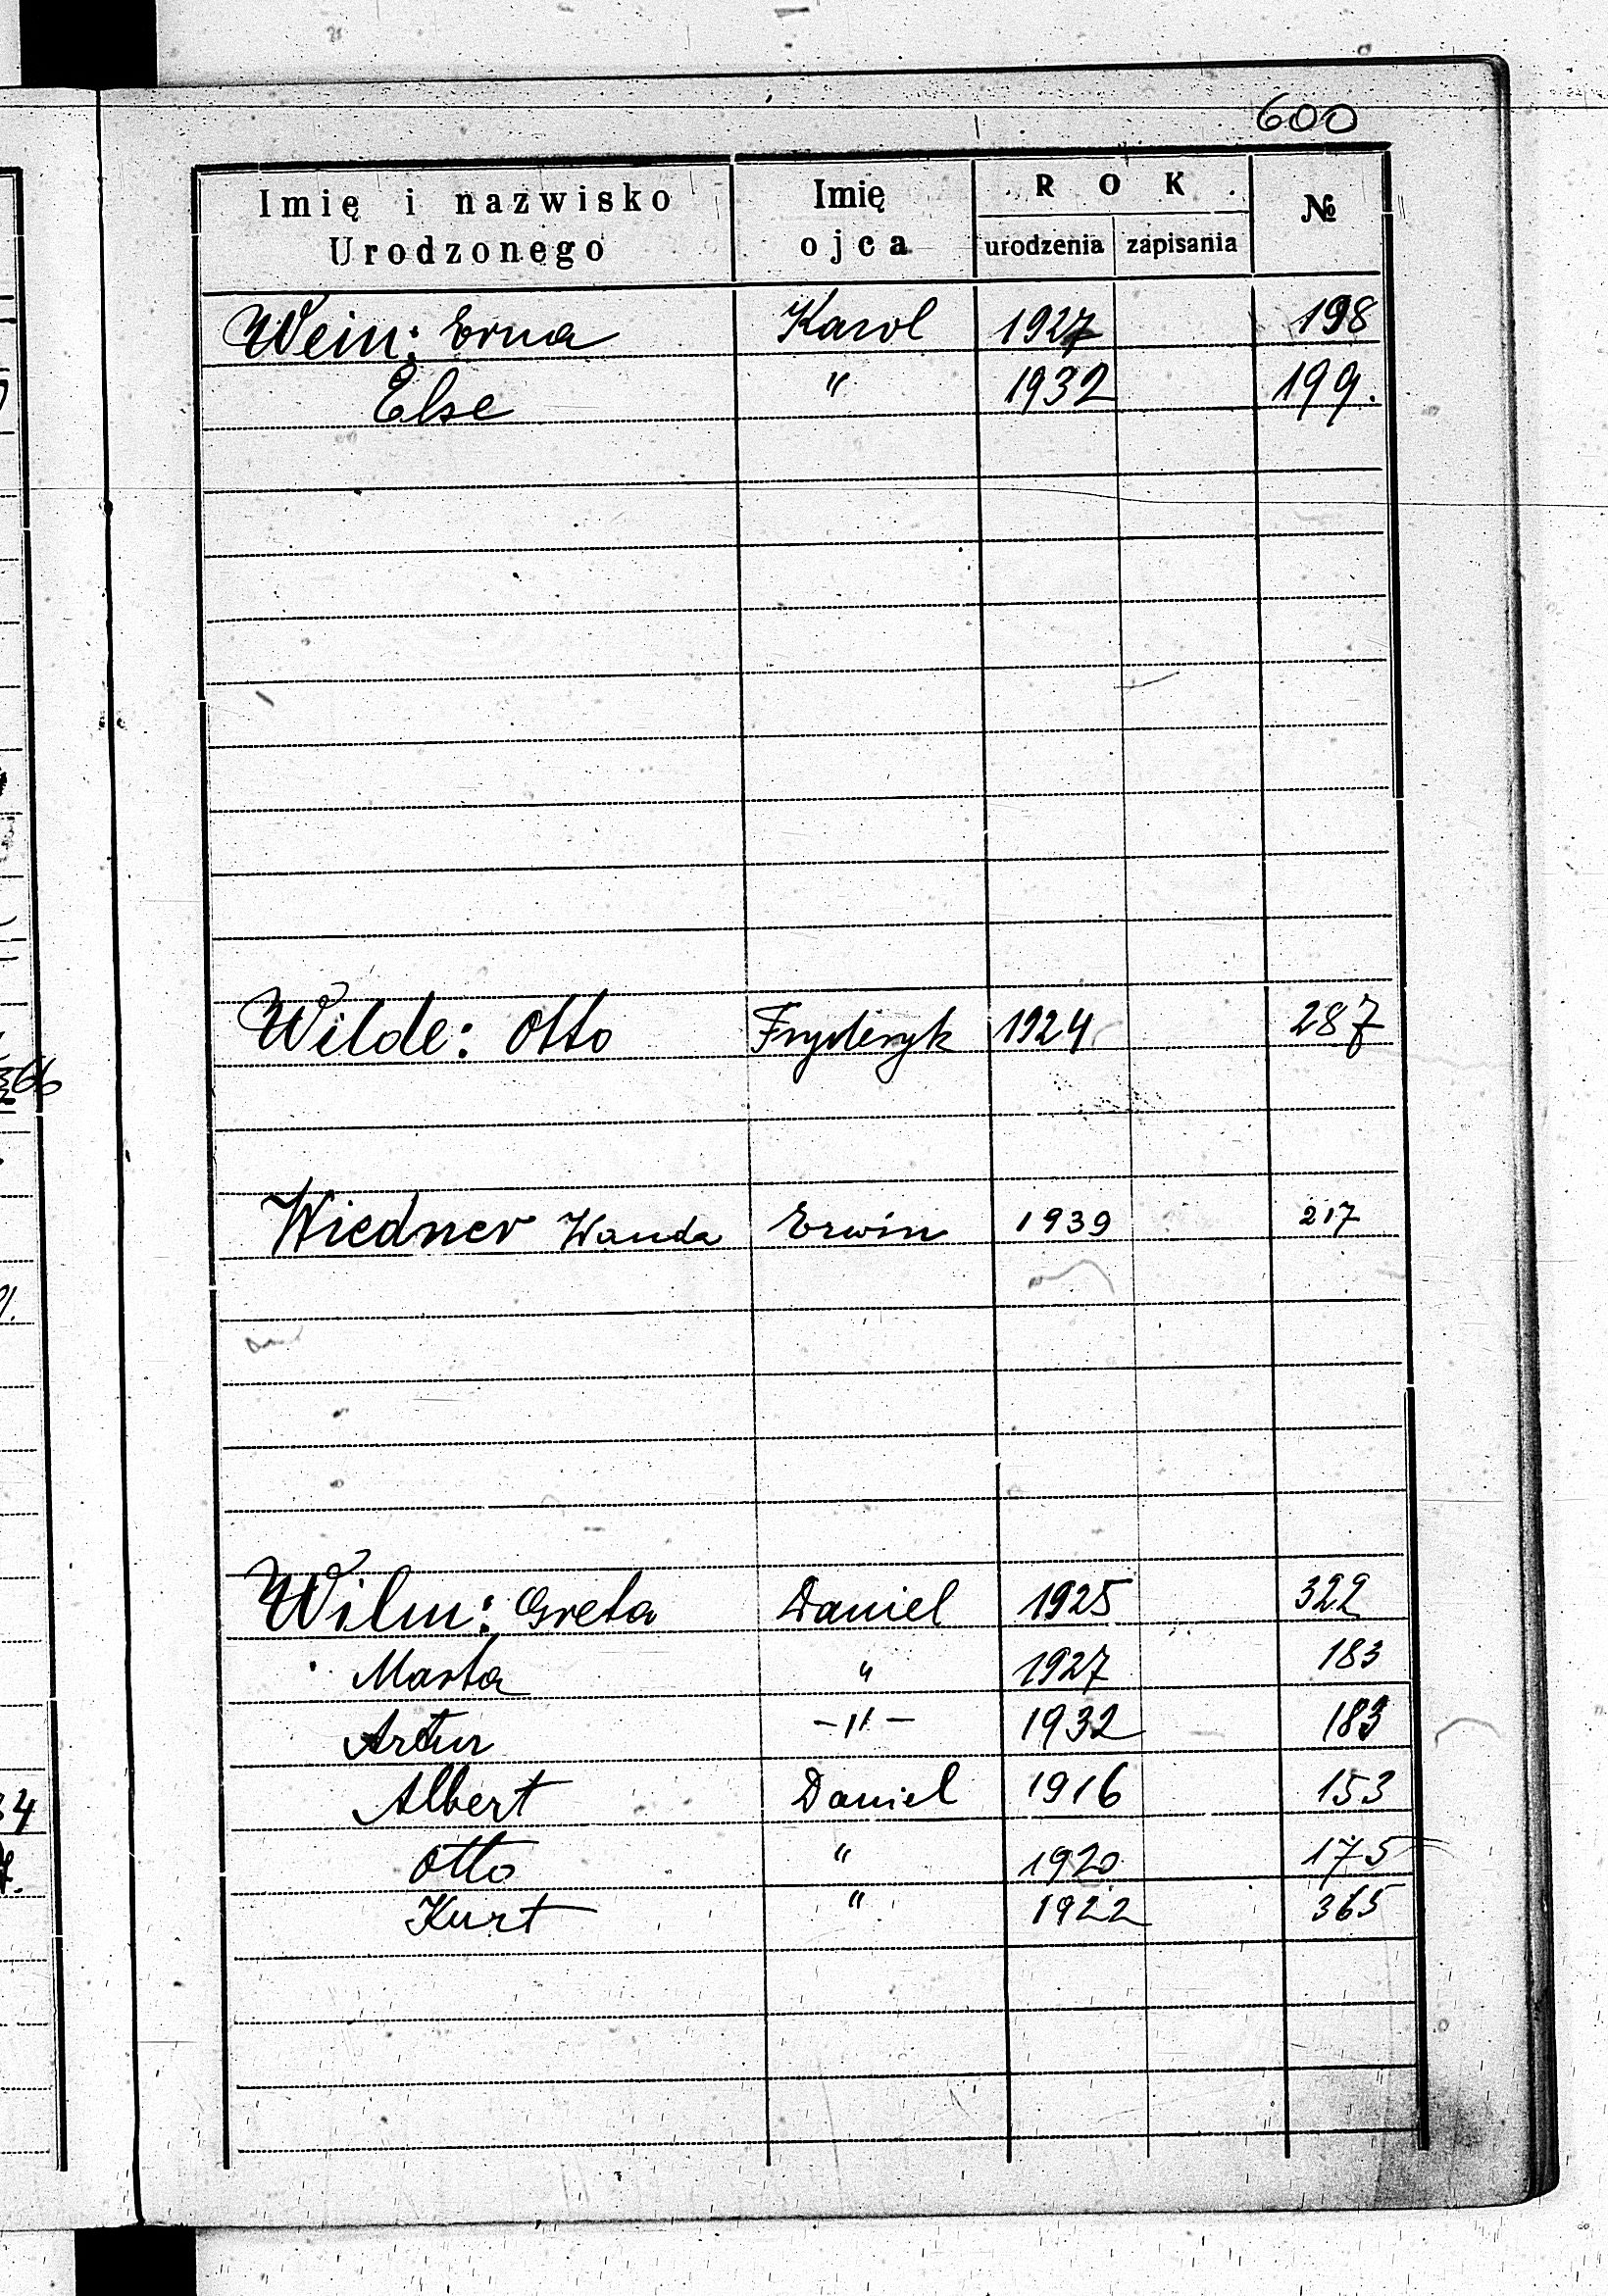 600
Imię i nazwisko Urodzonego | Imię ojca | ROK urodzenia | zapisania | №
Wein: Erna Karol 1927 198
Else " 1932 199.
Wilde: Otto Fryderyk 1924 287
Wiedner Wanda Erwin 1939 217
Wilm: Greta Daniel 1925 322
Marta " 1927 183
Artur -"- 1932 183
Albert Daniel 1916 153
Otto " 1920 175
Kurt " 1922 365